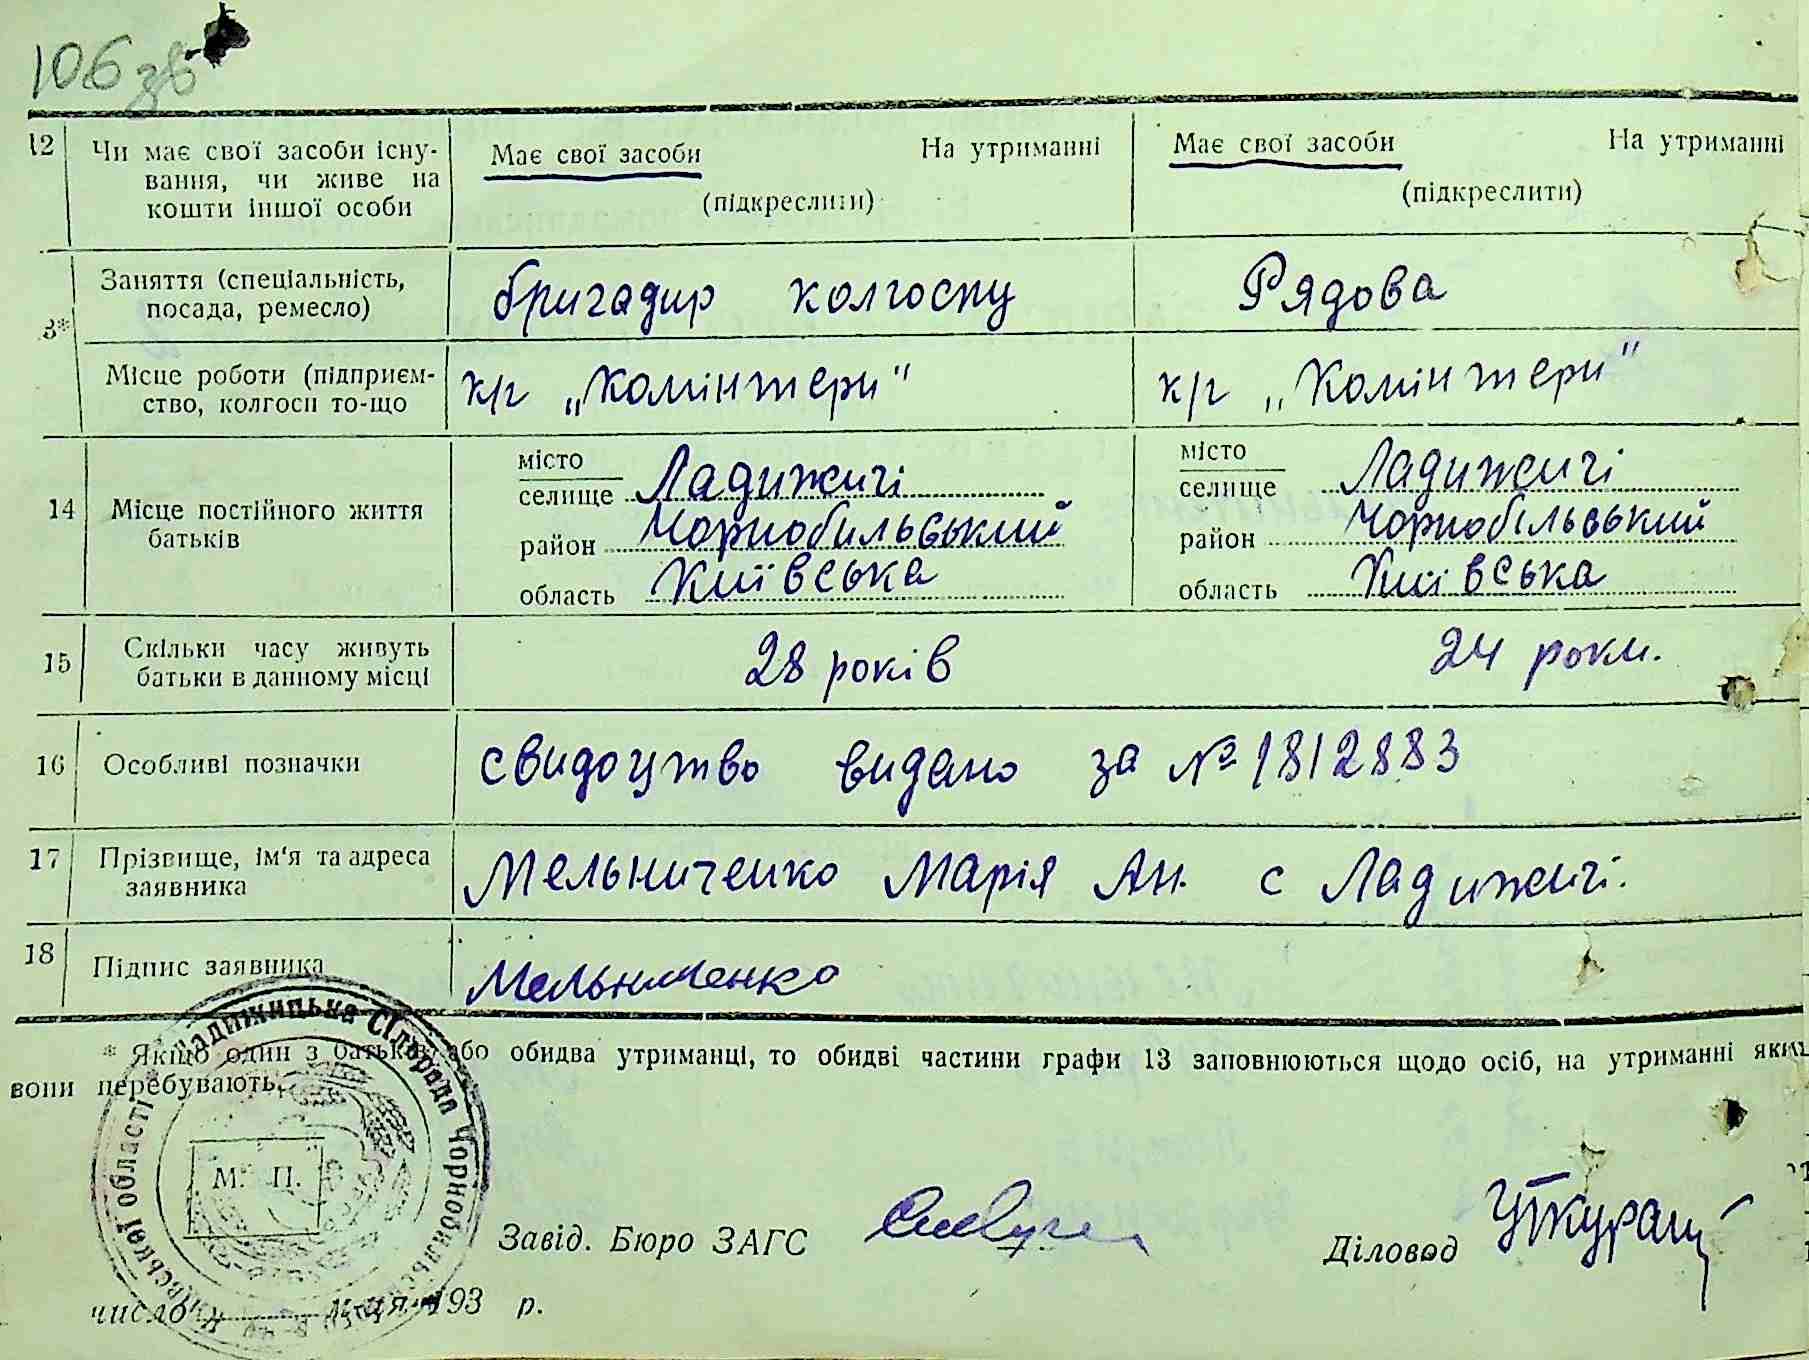 106 зв
12 Чи має свої засоби існу- Має свої засоби На утриманні Має свої засоби На утриманні
вання, чи живе на
кошти іншої особи (підкреслити) (підкреслити)
3* Заняття (спеціальність, бригадир колгоспу Рядова
посада, ремесло)
Місце роботи (підприєм- к/г „Комінтерн" к/г „Комінтерн"
ство, колгосп то-що
14 Місце постійного життя батьків
місто
селище Ладижичі
район Чорнобильський
область Київська
місто
селище Ладижичі
район Чорнобільський
область Київська
15 Скільки часу живуть 28 років 24 роки.
батьки в данному місці
16 Особливі позначки свидоцтво видано за № 1812883
17 Прізвище, ім'я та адреса Мельниченко Марія Ан. с Ладижичі.
заявника
18 Підпис заявника Мельниченко
* Якщо один з батьків або обидва утриманці, то обидві частини графи 13 заповнюються щодо осіб, на утриманні яких
вони перебувають.
Ладижицька Сільрада Чорнобильського р-ну Київської області
М. П.
Завід. Бюро ЗАГС Діловод
число м-ця 193 р.